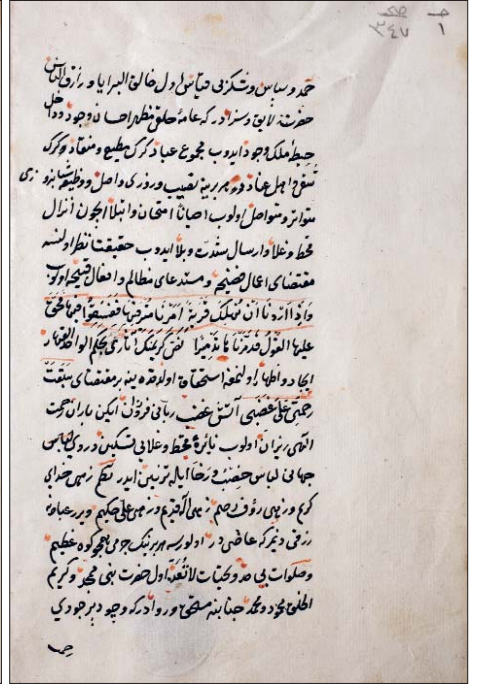 حمد و سپاس و شکر بی قیاس اول خالق البرایا و رازق الناس
حضرتنه لایق و سزادر که عامهٔ خلق مظهر احسان وجود و داخل
حیطهٔ ملک وجود ایدوب مجموع عبادک کرک مطیع و منقاد و کرک
اهل عناد هر برینه نصیب و روزی واصل و وظیفه
متواتر و متواصل اولوب احیانا امتحان و ابتلا ایچون انزال
قحط و غلا و ارسال شدت و بلا ایدوب حقیقتا نظر اولنسه
مقتضای اعمال قضیحه و مستدعای مظالم و افعال قبیحه اولوب
وَإِذَا أَرَدْنَا أَنْ نُهْلِكَ قَرْيَةً أَمَرْنَا مُتْرَفِيهَا فَفَسَقُوا فِيهَا فَحَقَّ
عليها القول فدمرناها تدميرا
ایجاد و اظهار اولنمغه استحقاق اولدقده ینه بر مقتضای سبقت
رحمتی علی غضبی آتش غضب ربانی فروزان ایکن باران رحمت
الهی ریزان اولوب نائرهٔ قحط و غلایی تسکین و روی
جهانی لباس خصب و رخا ایله تزیین ایدر زهی خدای
کریم و زهی رؤف رحیم زهی اله قدیم و زهی علی حکیم ویرر عبادنه
رزقی دیمز که عاصی در اولورسه هر برینک جرمی همچو کوه عظیم
و صلوات بی حد و تحیات لا تعد اول حضرت نبی ممجد و کریم
الخلق محمد جنابنه و روادر که وجود پر جودی